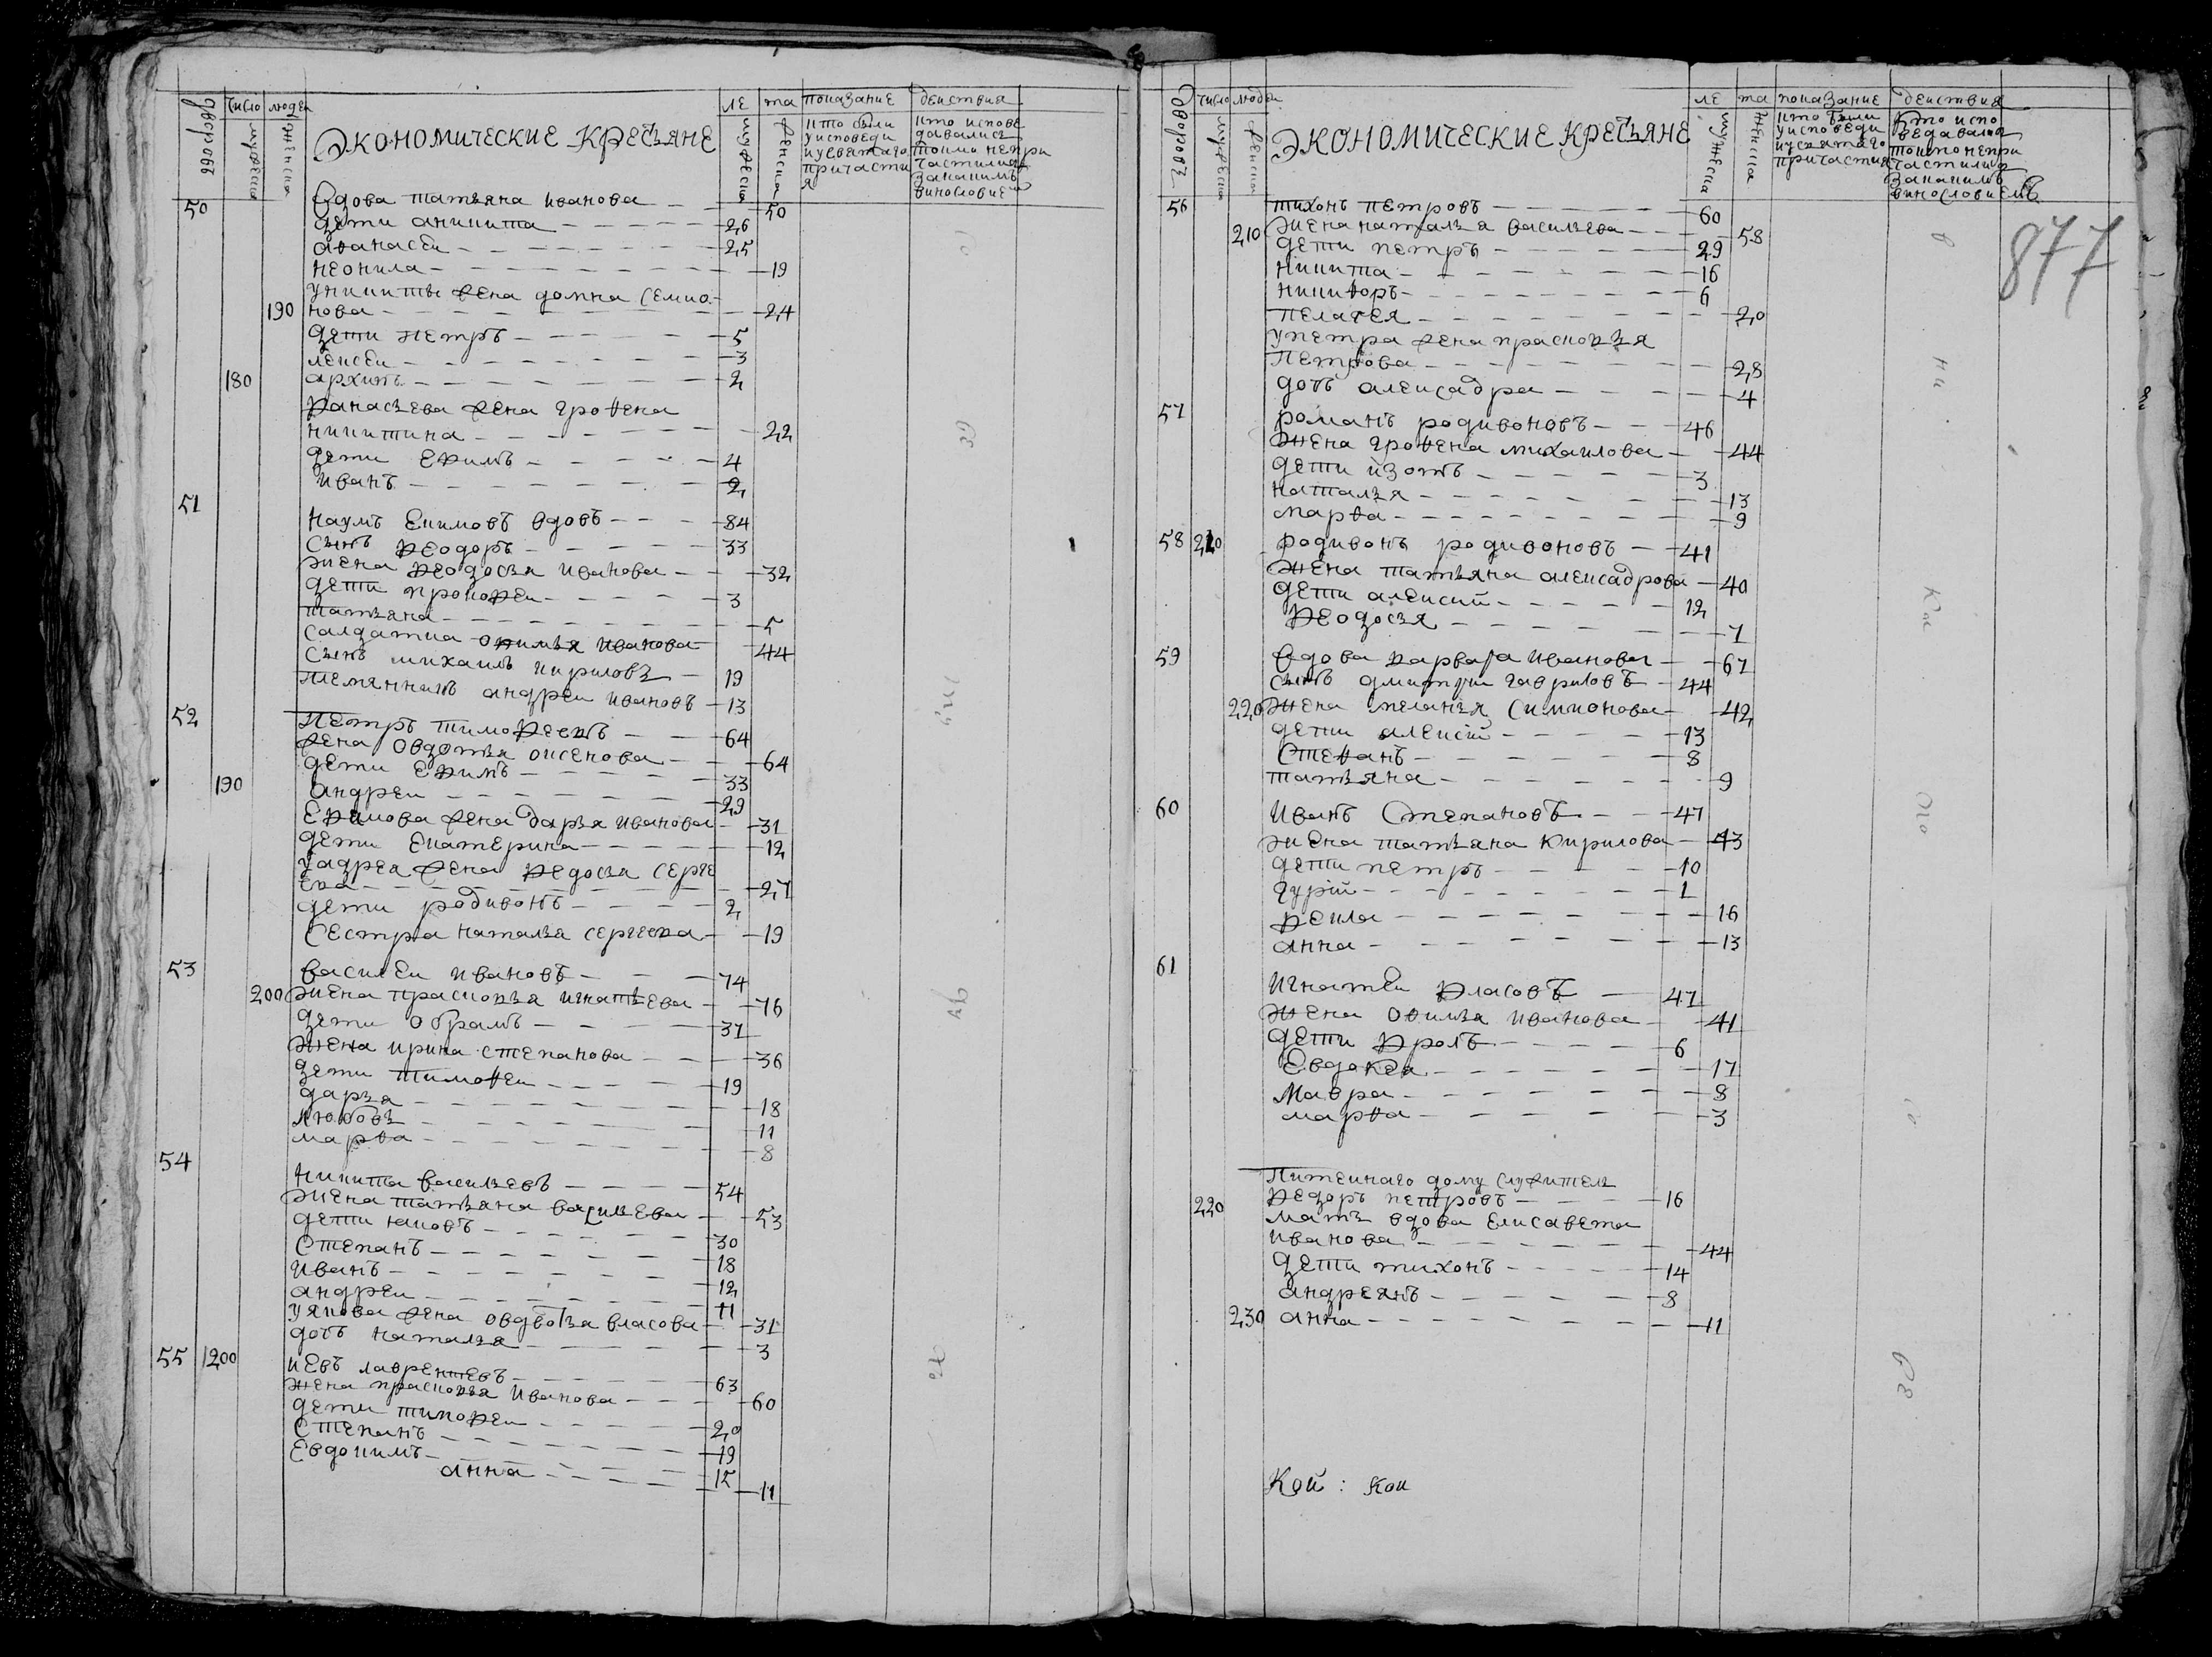 дворовъ число людеи ле та показание деиствия
мужеска женска ЭКОНОМИЧЕСКИЕ КРЕСТЬЯНЕ мужеска женска
кто были кто испове
у исповеди давались
и у святаго токмо непри
причасти частились
я за какимъ
винословиемъ
50 Вдова татьяна иванова — 50
дети аникита — 26
аѳанасеи — 25
неонила — 19
у никиты жена домна семио
190 нова — 24
дети петръ — 5
алексеи — 3
180 архипъ — 2
Фанасьева жена груѳена
никитина — 22
дети Ефимъ — 4
иванъ — 2
51 Наумъ Екимовъ вдовъ — 84
сынъ Феодоръ — 33
жена Феодосья иванова — 32
дети прокофеи — 3
татьяна — 5
салдатка офимья иванова 44
сынъ михаилъ кириловъ — 19
племянникъ андреи ивановъ — 13
52 Петръ тимофеевъ — 64
жена овдотья аксенова — 64
дети Ефимъ — 33
190 андреи — 29
Ефимова жена дарья иванова — 31
дети Екатерина — 12
у адрея жена Федосья серге
ева — 27
дети родивонъ — 2
Сестра наталья сергеева — 19
53 василеи ивановъ — 74
200 жена прасковья игнатьева — 76
дети обрамъ — 37
жена ирина степанова — 36
дети тимоѳеи — 19
дарья — 18
любовь — 11
марѳа — 8
54 Никита васильевъ — 54
жена татьяна васильева — 53
дети яковъ — 30
Степанъ — 18
иванъ — 12
андреи — 11
у якова жена овдотья власова — 31
дочь наталья — 3
55 200 иевъ лаврентьевъ — 63
жена прасковья иванова — 60
дети тимофеи — 20
Степанъ — 19
Евдокимъ — 15
анна — 11
дворовъ число людеи ле та показание деиствия
мужеска женска ЭКОНОМИЧЕСКИЕ КРЕСТЬЯНЕ мужеска женска
кто были кто испо
у исповеди ведавались
и у святаго токмо непри
причастия частились
за какимъ
винословиемъ
877
56 тихонъ петровъ — 60
210 жена наталья васильева — 58
дети петръ — 29
Никита — 16
никифоръ — 6
пелагея — 20
у петра жена прасковья
Петрова — 28
дочь алексадра — 4
57 романъ родивоновъ — 46
жена груѳена михаилова — 44
дети изотъ — 3
наталья — 13
марѳа — 9
58 210 родивонъ родивоновъ — 41
жена татьяна алексадрова — 40
дети алексий — 12
Феодосья — 7
59 вдова варвара иванова — 67
сынъ дмитрии гавриловъ — 44
220 жена меланья симионова — 42
дети алексий — 13
Стеѳанъ — 8
татьяна — 9
60 иванъ Степановъ — 47
жена татьяна кирилова — 43
дети петръ — 10
гурий — 1
Фекла — 16
анна — 13
61 Игнатеи Власовъ — 47
жена оѳимья иванова — 41
дети Фролъ — 6
Евдокея — 17
Мавра — 8
марѳа — 3
Питейнаго дому служитель
220 Федоръ петровъ — 16
мать вдова Елисавета
иванова — 44
дети тихонъ — 14
андреянъ — 8
230 анна — 11
Кой : кои